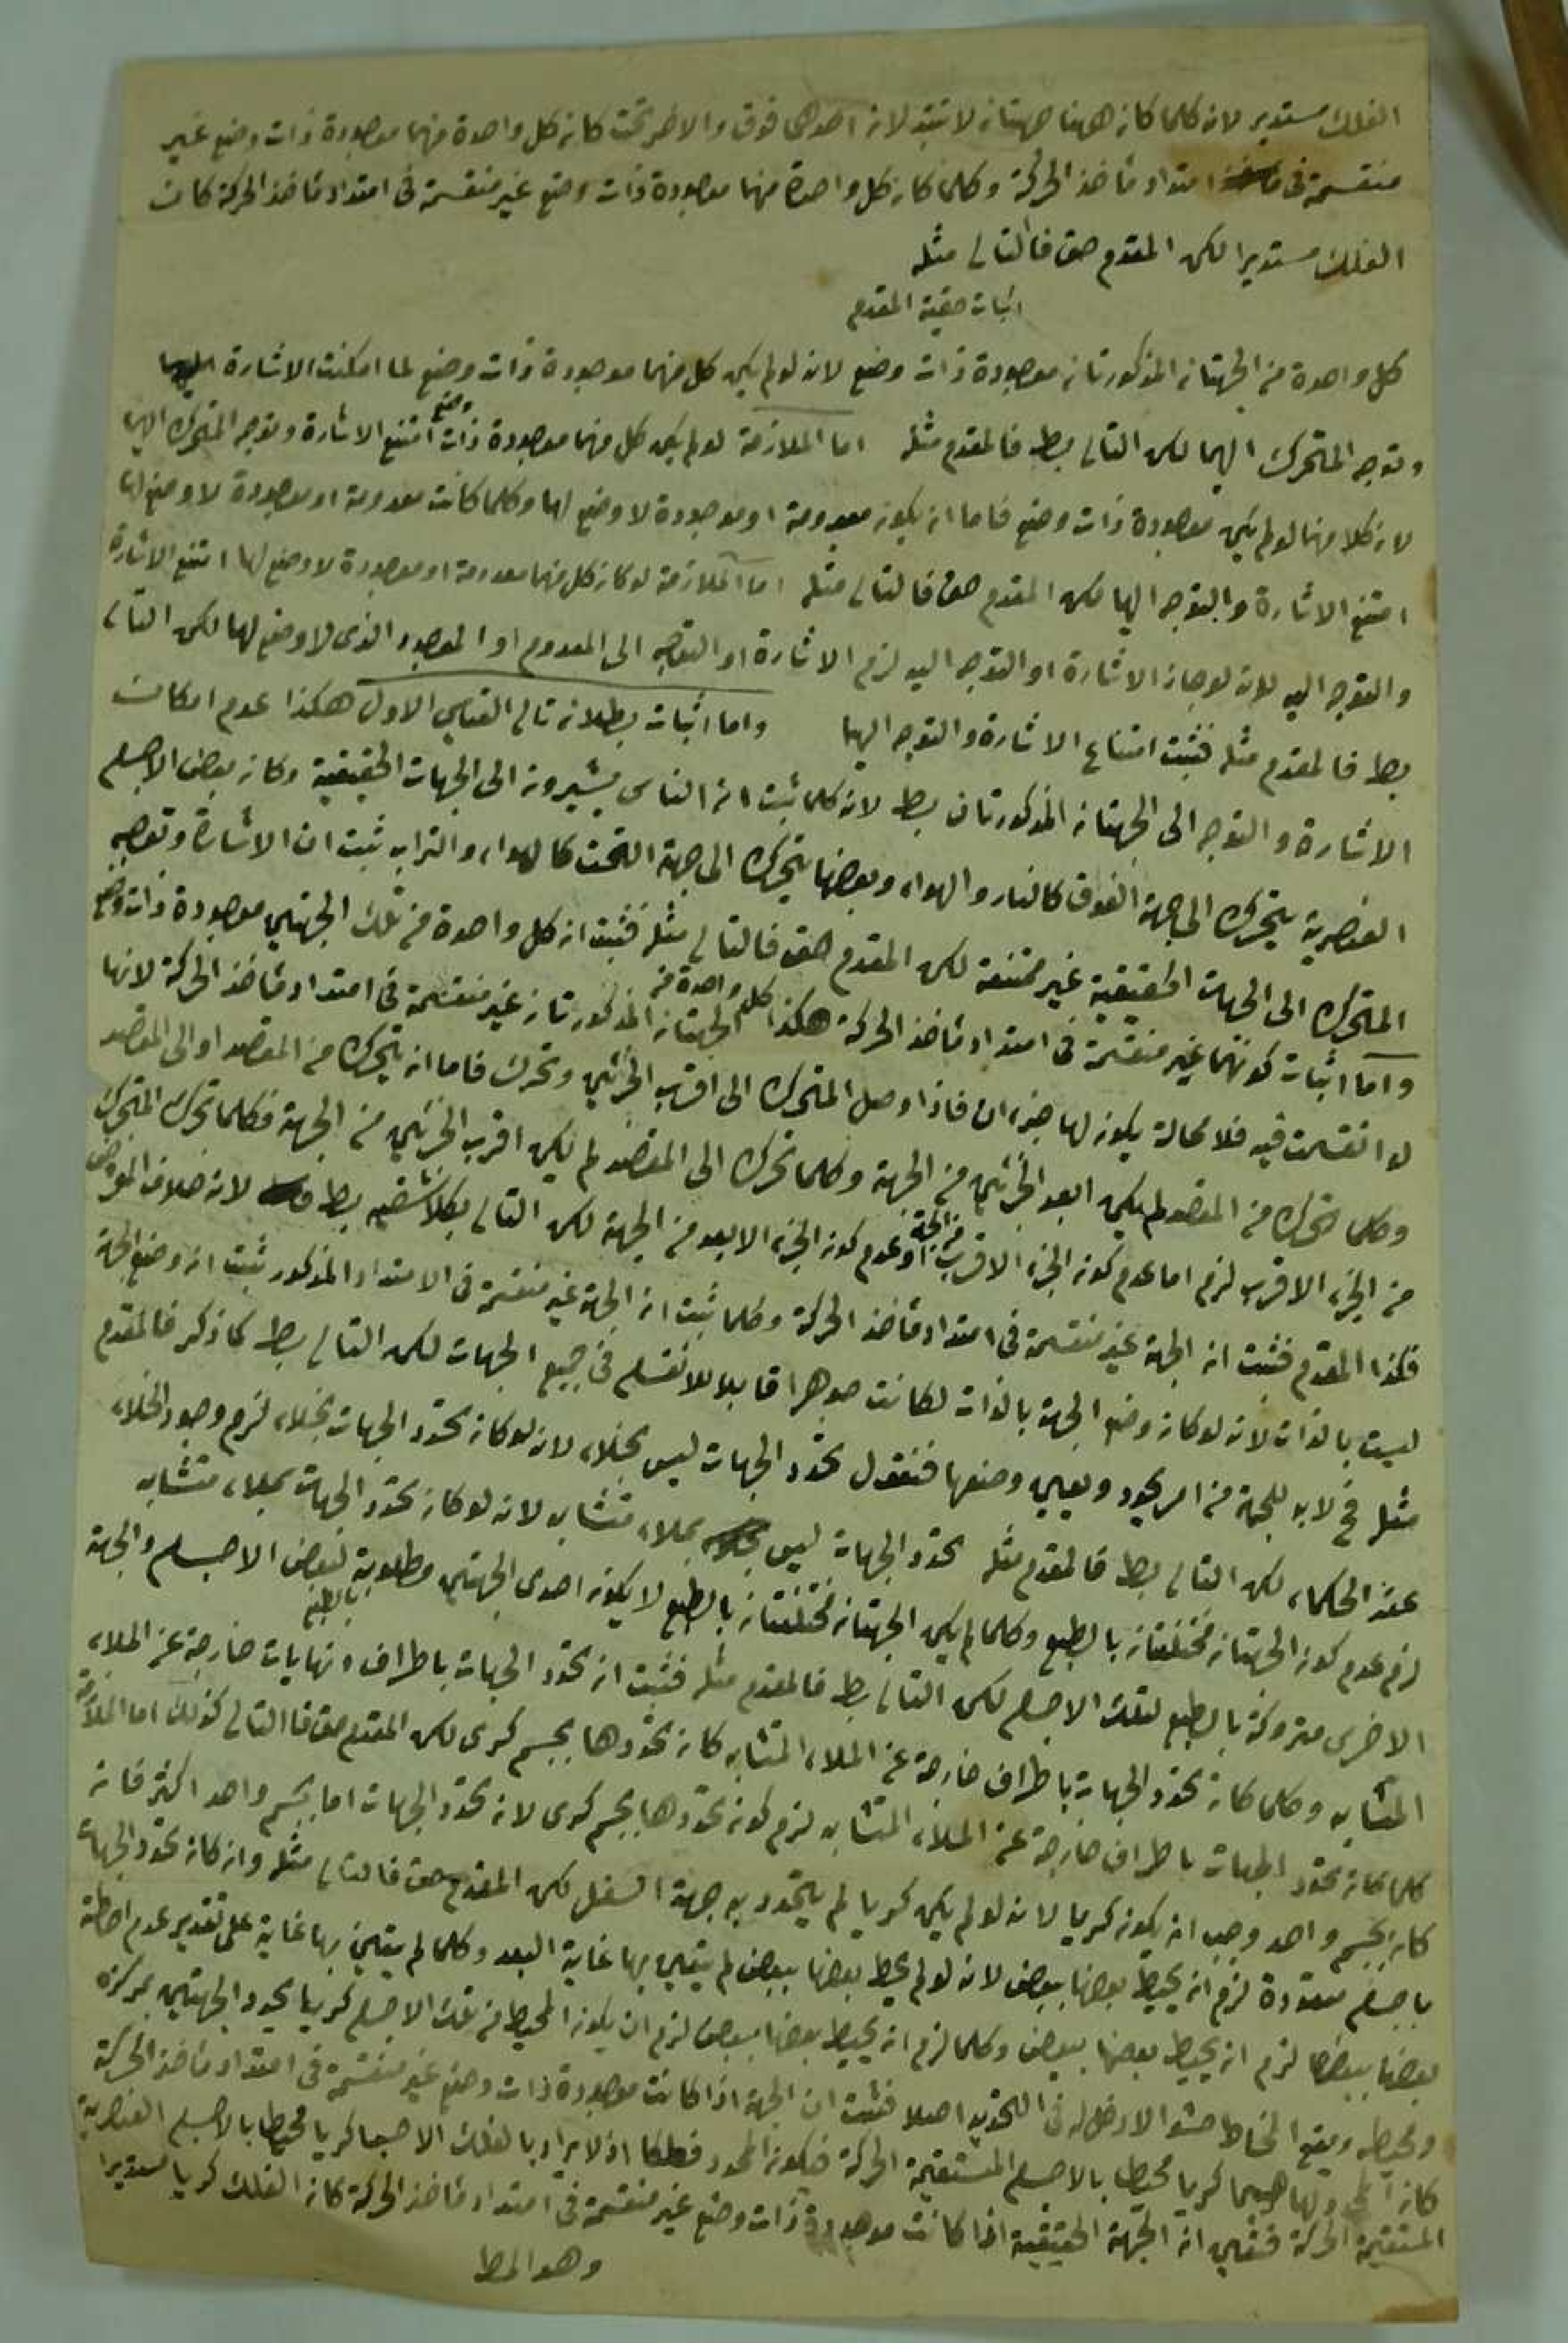 الفلك مستدير لانه كلما كان ههنا جهتان لا تتبدلان احدهما فوق والاخر تحت كان كل واحدة منهما موجودة ذات وضع غير
منقسمة فى امتداد مأخذ الحركة وكلما كان كل واحدة منهما موجودة ذات وضع غير منقسمة فى امتداد مأخذ الحركة كان
الفلك مستديرا لكن المقدم حق فالتالى مثله
اثبات حقية المقدم
كل واحدة من الجهتان المذكورتان موجودة ذات وضع لانه لو لم يكن كل منهما موجودة ذات وضع لما امكنت الاشارة اليها
وتوجه المتحرك اليهما لكن التالى بط فالمقدم مثله اما الملازمة لو لم يكن كل منهما موجودة ذات وضع امتنع الاشارة وتوجه المتحرك اليها
لان كلا منهما لو لم يكن موجودة ذات وضع فاما ان يكون معدومة او موجودة لا وضع لها وكلما كانت معدومة او موجودة لا وضع لها
امتنع الاشارة والتوجه اليها لكن المقدم حق فالتالى مثله اما الملازمة لو كان كل منهما معدومة او موجودة لا وضع لها امتنع الاشارة
والتوجه اليه لانه لو جاز الاشارة او التوجه اليه لزم الاشارة او التوجه الى المعدوم او الموجود الذى لا وضع لها لكن التالى
بط فالمقدم مثله فثبت امتناع الاشارة والتوجه اليها واما اثبات بطلان تالى القياس الاول هكذا عدم امكان
الاشارة والتوجه الى الجهتان المذكورتان بط لانه كلما ثبت ان الناس يشيرون الى الجهات الحقيقية وكان بعض الاجسام
العنصرية يتحرك الى جهة الفوق كالنار والهواء وبعضها يتحرك الى جهة التحت كالهواء والتراب ثبت ان الاشارة وتوجه
المتحرك الى الجهات الحقيقية غير ممتنعة لكن المقدم حق فالتالى مثله فثبت ان كل واحدة من تلك الجهتين موجودة ذات وضع
واما اثبات كونهما غير منقسمة فى امتداد مأخذ الحركة هكذا كل واحدة من الجهتان المذكورتان غير منقسمة فى امتداد مأخذ الحركة لانها
لو انقسمت فيه فلا محالة يكون لها جزءان فاذا وصل المتحرك الى اقرب الجزئين وتحرك فاما ان يتحرك من المقصد او الى المقصد
وكلما تحرك من المقصد لم يكن ابعد الجزئين من الجهة وكلما تحرك الى المقصد لم يكن اقرب الجزئين من الجهة فكلما تحرك المتحرك
من الجزء الاقرب لزم اما عدم كون الجزء الاقرب من الجهة او عدم كون الجزء الابعد من الجهة لكن التالى بكلا شقيه بط لانه خلاف المفروض
فكذا المقدم فثبت ان الجهة غير منقسمة فى امتداد مأخذ الحركة وكلما ثبت ان الجهة غير منقسمة فى الامتداد المذكور ثبت ان وضع الجهة
ليست بالذات لانه لو كان وضع الجهة بالذات لكانت جوهرا قابلا للانقسام فى جميع الجهات لكن التالى بط كما ذكر فالمقدم
مثله فح لابد للجهة من امر يحدد ويعين وضعها فنقول تحدد الجهات ليس بخلاء لانه لو كان تحدد الجهات بخلاء لزم وجود الخلاء
عند الحكماء لكن التالى بط فالمقدم مثله تحدد الجهات ليس بملاء متشابه لانه لو كان تحدد الجهات بملاء متشابه
لزم عدم كون الجهتان مختلفتان بالطبع وكلما لم يكن الجهتان مختلفتان بالطبع لا يكون احدى الجهتين مطلوبة بالطبع لبعض الاجسام والجهة
الاخرى متروكة بالطبع لتلك الاجسام لكن التالى بط فالمقدم مثله فثبت ان تحدد الجهات باطراف ونهايات خارجة عن الملاء
المتشابه وكلما كان تحدد الجهات باطراف خارجة عن الملاء المتشابه كان تحددها بجسم كرى لكن المقدم حق فالتالى كذلك اما الملازمة
كلما كان تحدد الجهات باطراف خارجة عن الملاء المتشابه لزم كون تحددها بجسم كرى لانه تحدد الجهات اما بجسم واحد اكثر فان
كان بجسم واحد وجب ان يكون كريا لانه لو لم يكن كريا لم يتحدد به جهة السفل لكن المقدم حق فالتالى مثله وان كان تحدد الجهات
باجسام متعددة لزم ان يحيط بعضها ببعض لانه لو لم يحط بعضها ببعض لم يتعين بها غاية البعد وكلما لم يتعين بها غاية على تقدير عدم احاطة
بعضها ببعضها لزم ان يحيط بعضها ببعض وكلما لزم ان يحيط بعضها ببعض لزم ان يكون المحيط من تلك الاجسام كريا يحدد الجهتين بمركزه
ومحيطه ويقع المحاط حشوا لا دخل له فى التحديد اصلا فثبت ان الجهة اذا كانت موجودة ذات وضع غير منقسمة فى امتداد مأخذ الحركة
كان المحدد لها جسما كريا محيطا بالاجسام المستقيمة الحركة فيكون المحدد فلكا اذ لا يراد بالفلك الا جسما كريا محيطا بالاجسام العنصرية
المستقيمة الحركة فتعين ان الجهة الحقيقية اذا كانت موجودة ذات وضع غير منقسمة فى امتداد مأخذ الحركة كان الفلك كريا مستديرا
وهو المط